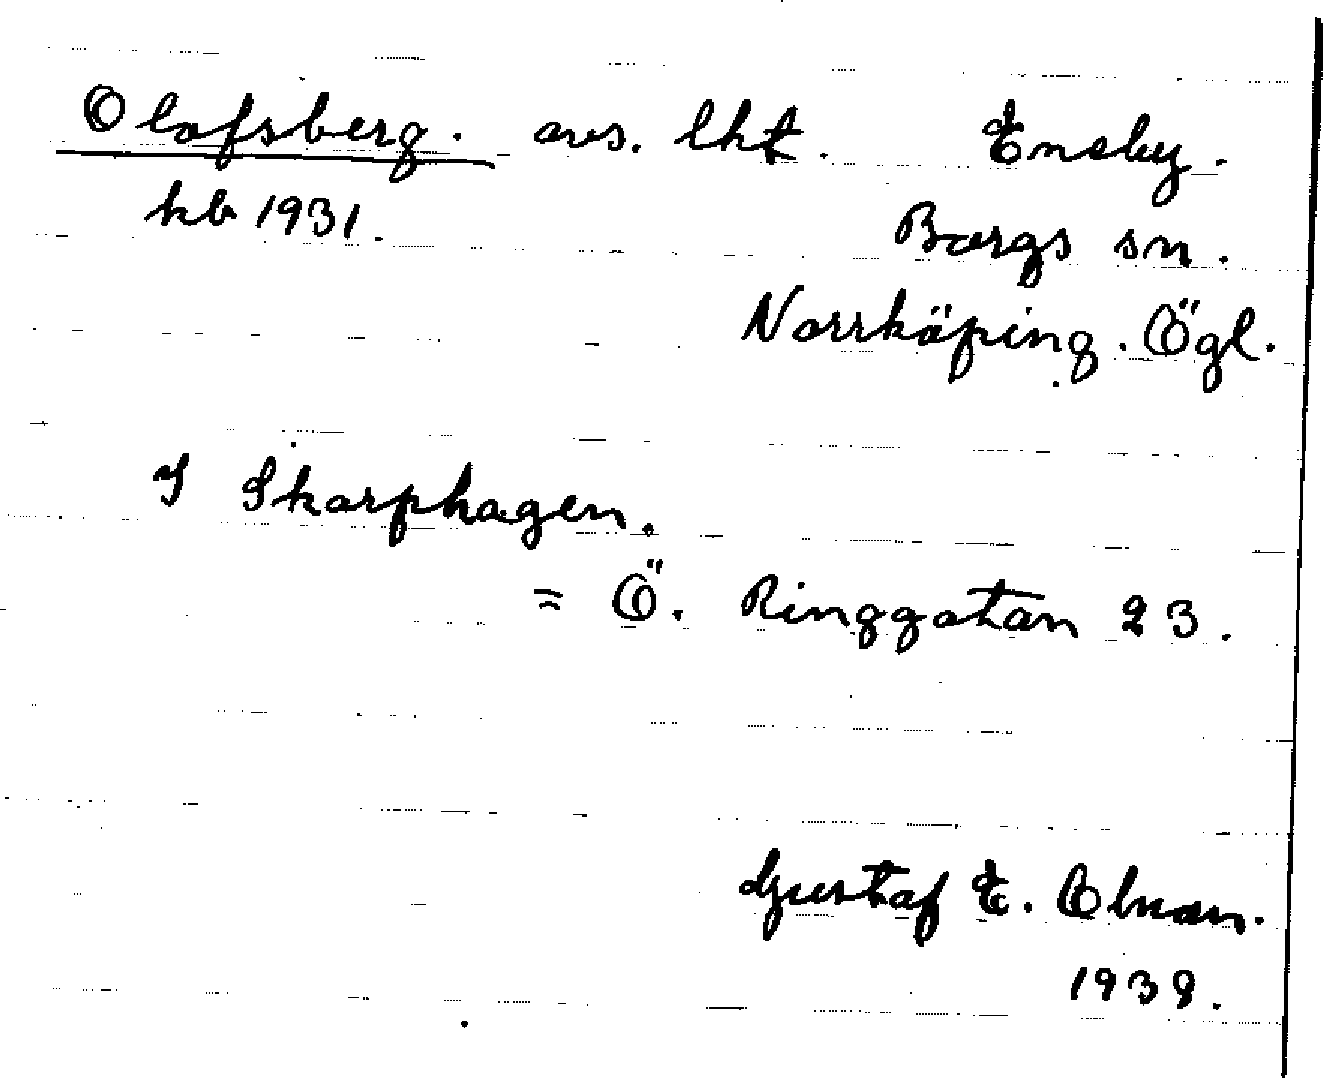 Olofsberg. avs. lht. Eneby.
kb 1931.
Borgs sn.
Norrköping. Ögl.
I Skarphagen.
= Ö. Ringgatan 23.
Gustaf E. Olman.
1938.